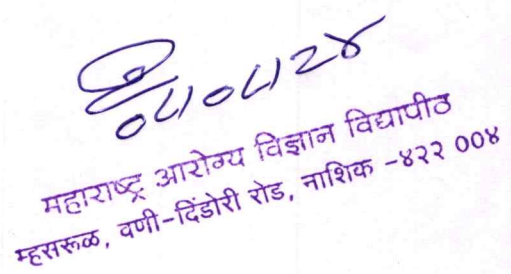 ०५/०५/२४
महाराष्ट्र आरोग्य विज्ञान विद्यापीठ
म्हसरूळ, वणी-दिंडोरी रोड, नाशिक -४२२ ००४